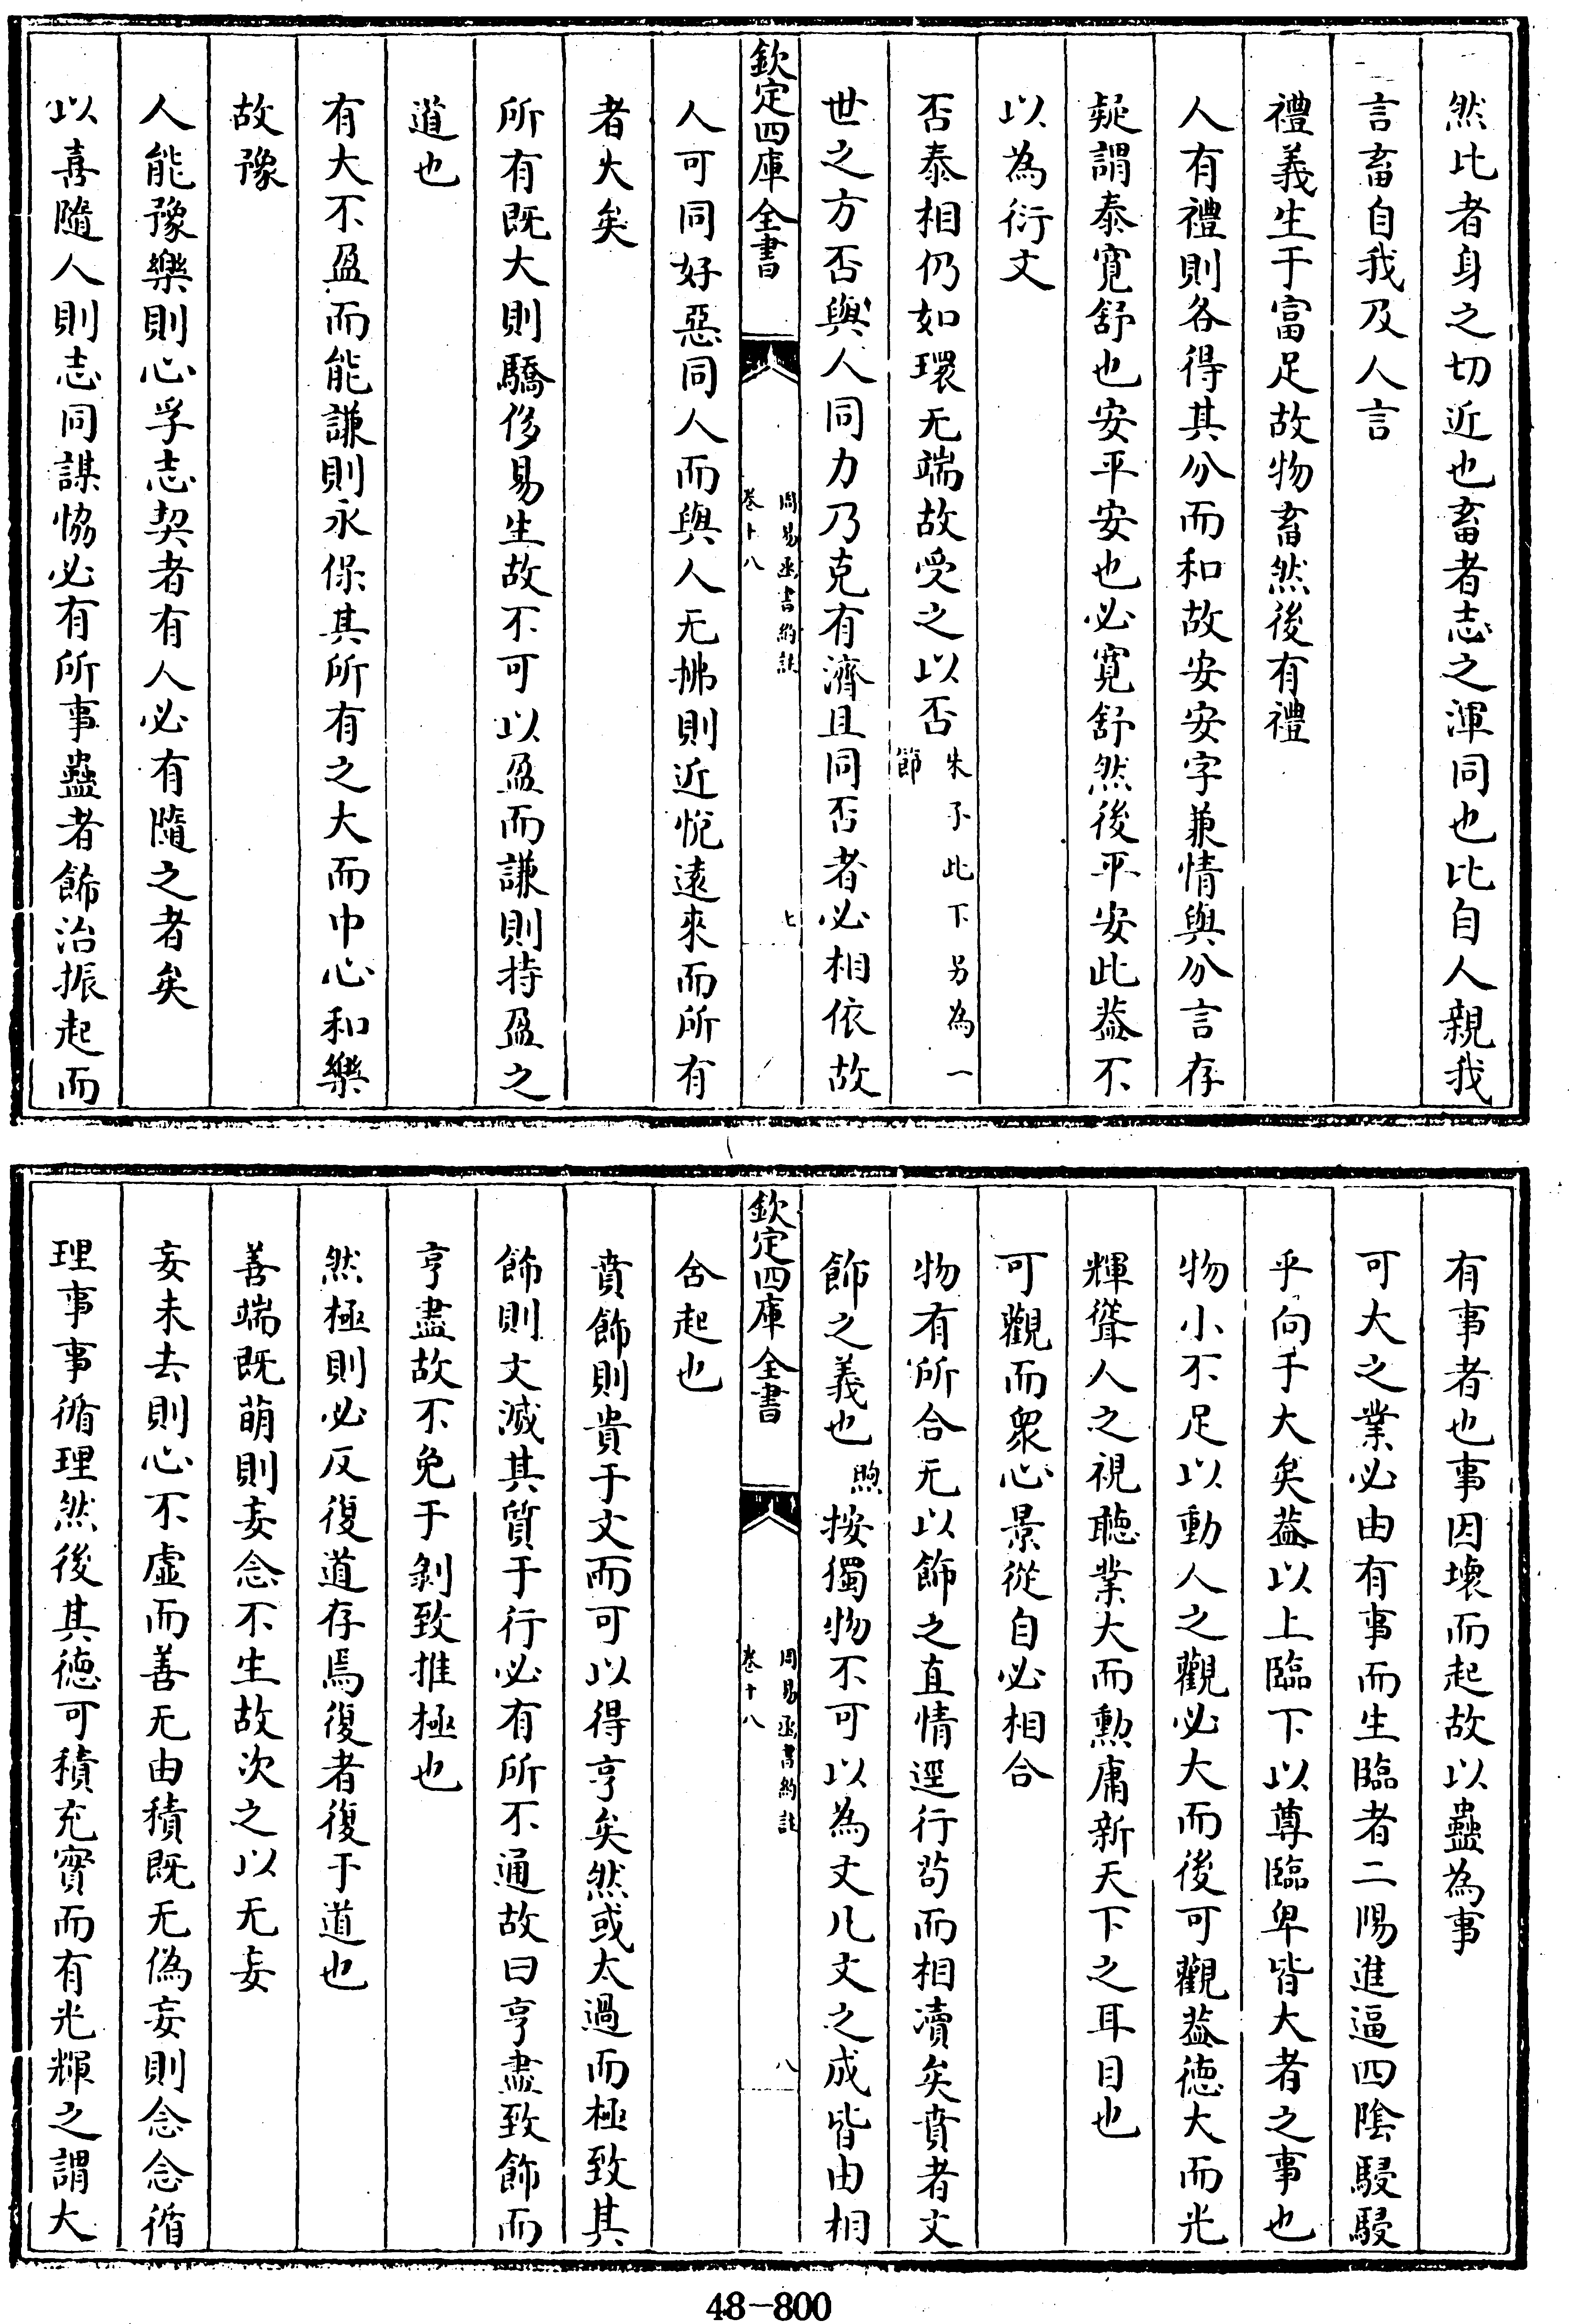 然比者身之切近也畜者志之渾同也比自人親我
言畜自我及人言
禮義生于富足故物畜然後有禮
人有禮則各得其分而和故安安字兼情與分言存
疑謂泰寛舒也安平安也必寛舒然後平安此葢不
以為衍文
否泰相仍如環无端故受之以否朱子此下另為一節
世之方否與人同力乃克有濟且同否者必相依故
欽定四庫全書
周易函書約註
卷十八
七
人可同好惡同人而與人无拂則近悅遠來而所有
者大矣
所有既大則驕侈易生故不可以盈而謙則持盈之
道也
有大不盈而能謙則永保其所有之大而中心和樂
故豫
人能豫樂則心孚志契者有人必有隨之者矣
以喜隨人則志同謀恊必有所事蠱者飾治振起而
有事者也事因壞而起故以蠱為事
可大之業必由有事而生臨者二陽進逼四陰駸駸
乎向于大矣葢以上臨下以尊臨卑皆大者之事也
物小不足以動人之觀必大而後可觀葢徳大而光
輝聳人之視聽業大而勲庸新天下之耳目也
可觀而衆心景從自必相合
物有所合无以飾之直情逕行茍而相凟矣賁者文
飾之義也煦按獨物不可以為文凡文之成皆由相
欽定四庫全書
周易函書約註
卷十八
八
合起也
賁飾則貴于文而可以得亨矣然或太過而極致其
飾則文滅其質于行必有所不通故曰亨盡致飾而
亨盡故不免于剝致推極也
然極則必反復道存焉復者復于道也
善端既萌則妄念不生故次之以无妄
妄未去則心不虛而善无由積既无偽妄則念念循
理事事循理然後其徳可積充實而有光輝之謂大
48-800